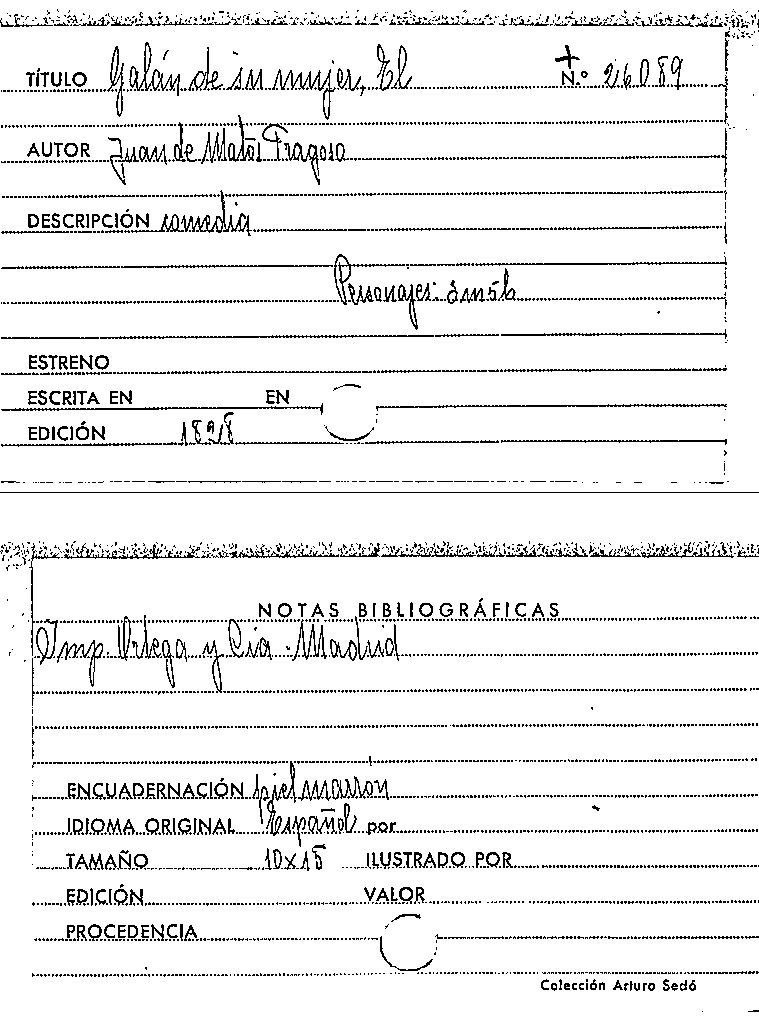 TÍTULO Galán de su mujer, El + N.º 26089
AUTOR Juan de Matos Fragoso
DESCRIPCIÓN comedia
Personajes: 8m5h
ESTRENO
ESCRITA EN EN
EDICIÓN 1828
NOTAS BIBLIOGRÁFICAS
Imp. Ortega y Cia. Madrid
ENCUADERNACIÓN piel marron
IDIOMA ORIGINAL Español por
TAMAÑO 10x15 ILUSTRADO POR
EDICIÓN VALOR
PROCEDENCIA
Colección Arturo Sedó